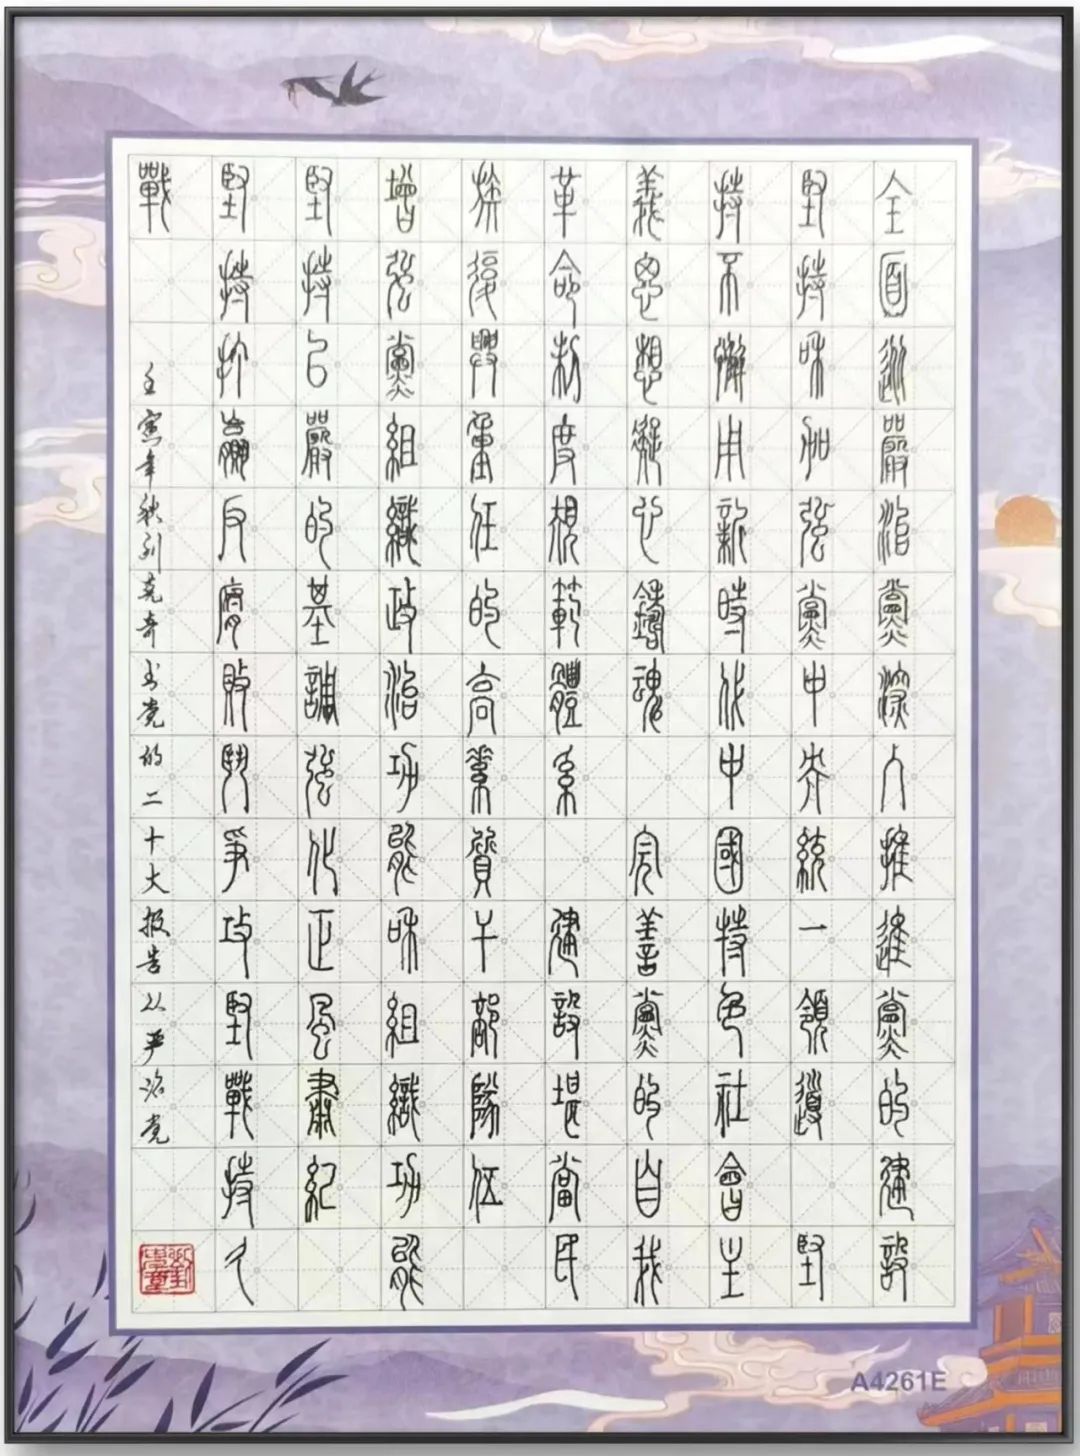 全面從嚴治黨深入推進黨的建設
堅持和加強黨中央統一領導 堅
持不懈用新時代中國特色社會主
義思想凝心鑄魂 完善黨的自我
革命制度規範體系 建設堪當民
族復興重任的高素質干部隊伍
增強黨組織政治功能和組織功能
堅持以嚴的基調強化正風肅紀
堅持打贏反腐敗鬥爭攻堅戰持久
戰
壬寅年秋刘奇书党的二十大报告从严治党
A4261E